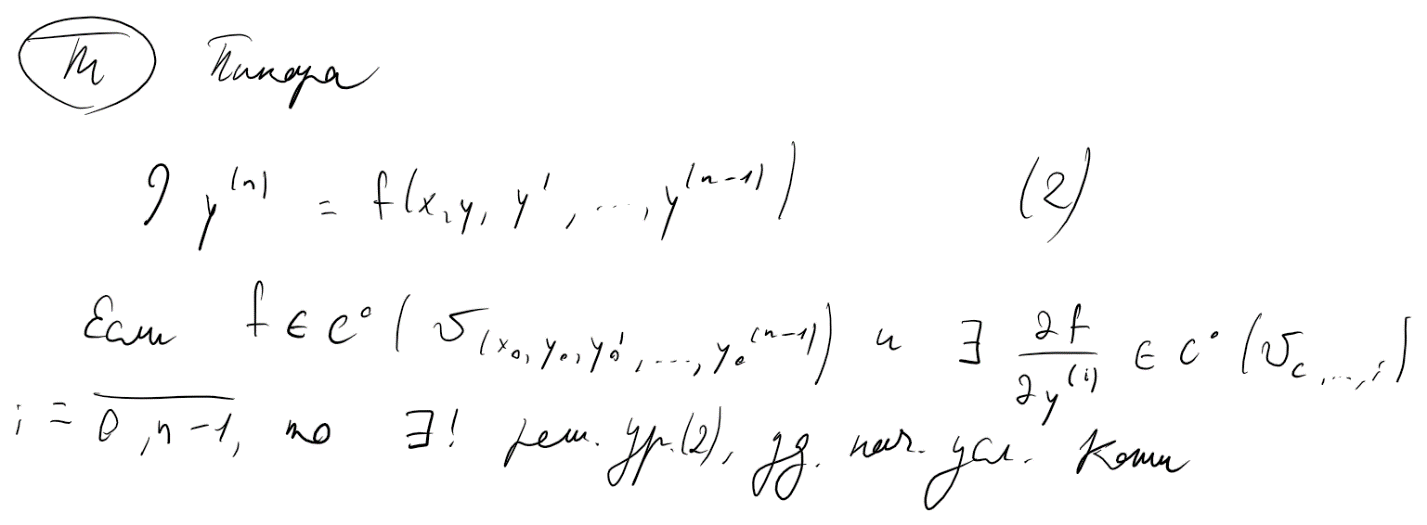 Т Пикара
∃ y^(n) = f(x, y, y', ..., y^(n-1)) (2)
Если f ∈ C°(U_(x₀, y₀, y₀', ..., y₀^(n-1))) и ∃ ∂f/∂y^(i) ∈ C°(U_(...))
i = 0, n-1, то ∃! реш. ур.(2), уд. нач. усл. Коши